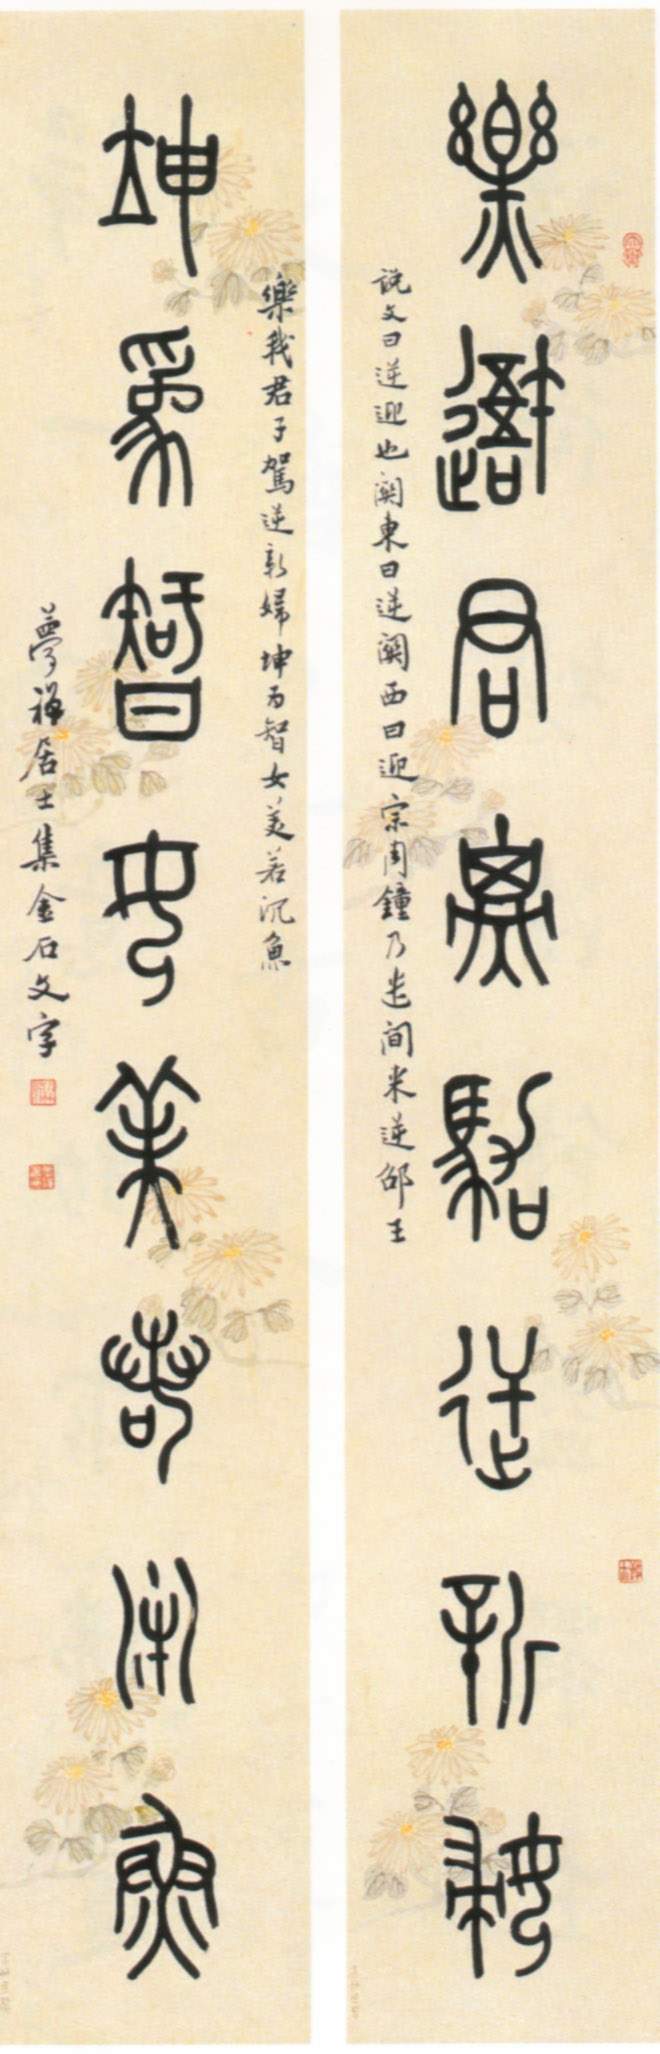 樂我君子駕逆新婦
說文曰逆迎也關東曰逆關西曰迎宗周鐘乃遣间来逆邵王
樂我君子駕逆新婦坤为智女美若沉魚
坤為智女美若沉魚
夢禅居士集金石文字